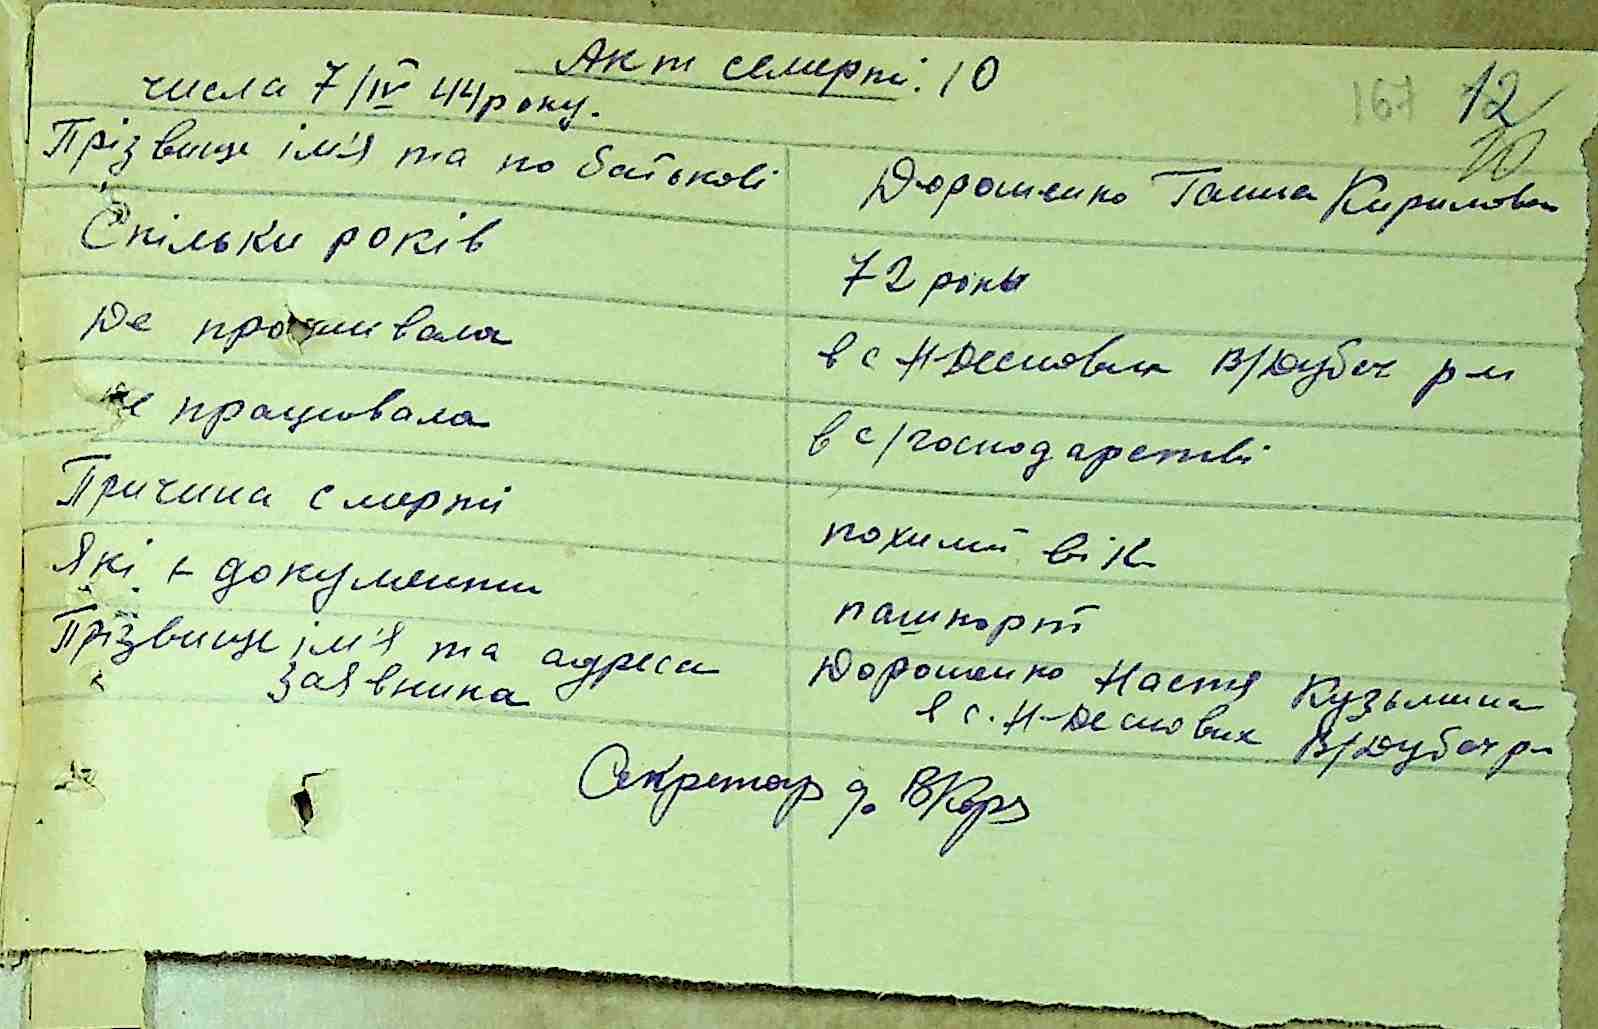 Акт семерті. 10
числа 7/IV 44 року.
167 12
10
Прізвище ім'я та по батькові Дорошенко Галина Кириловна
Скільки років 72 роки
Де проживала в с Н-Десновка В/Дубеч р-н
Де працювала в с/господарстві
Причина смерті похилий вік
Які є документи пашпорт
Прізвище ім'я та адреса Дорошенко Настя Кузьмина
заявника в с. Н-Десновка В/Дубеч р-н
Секретар